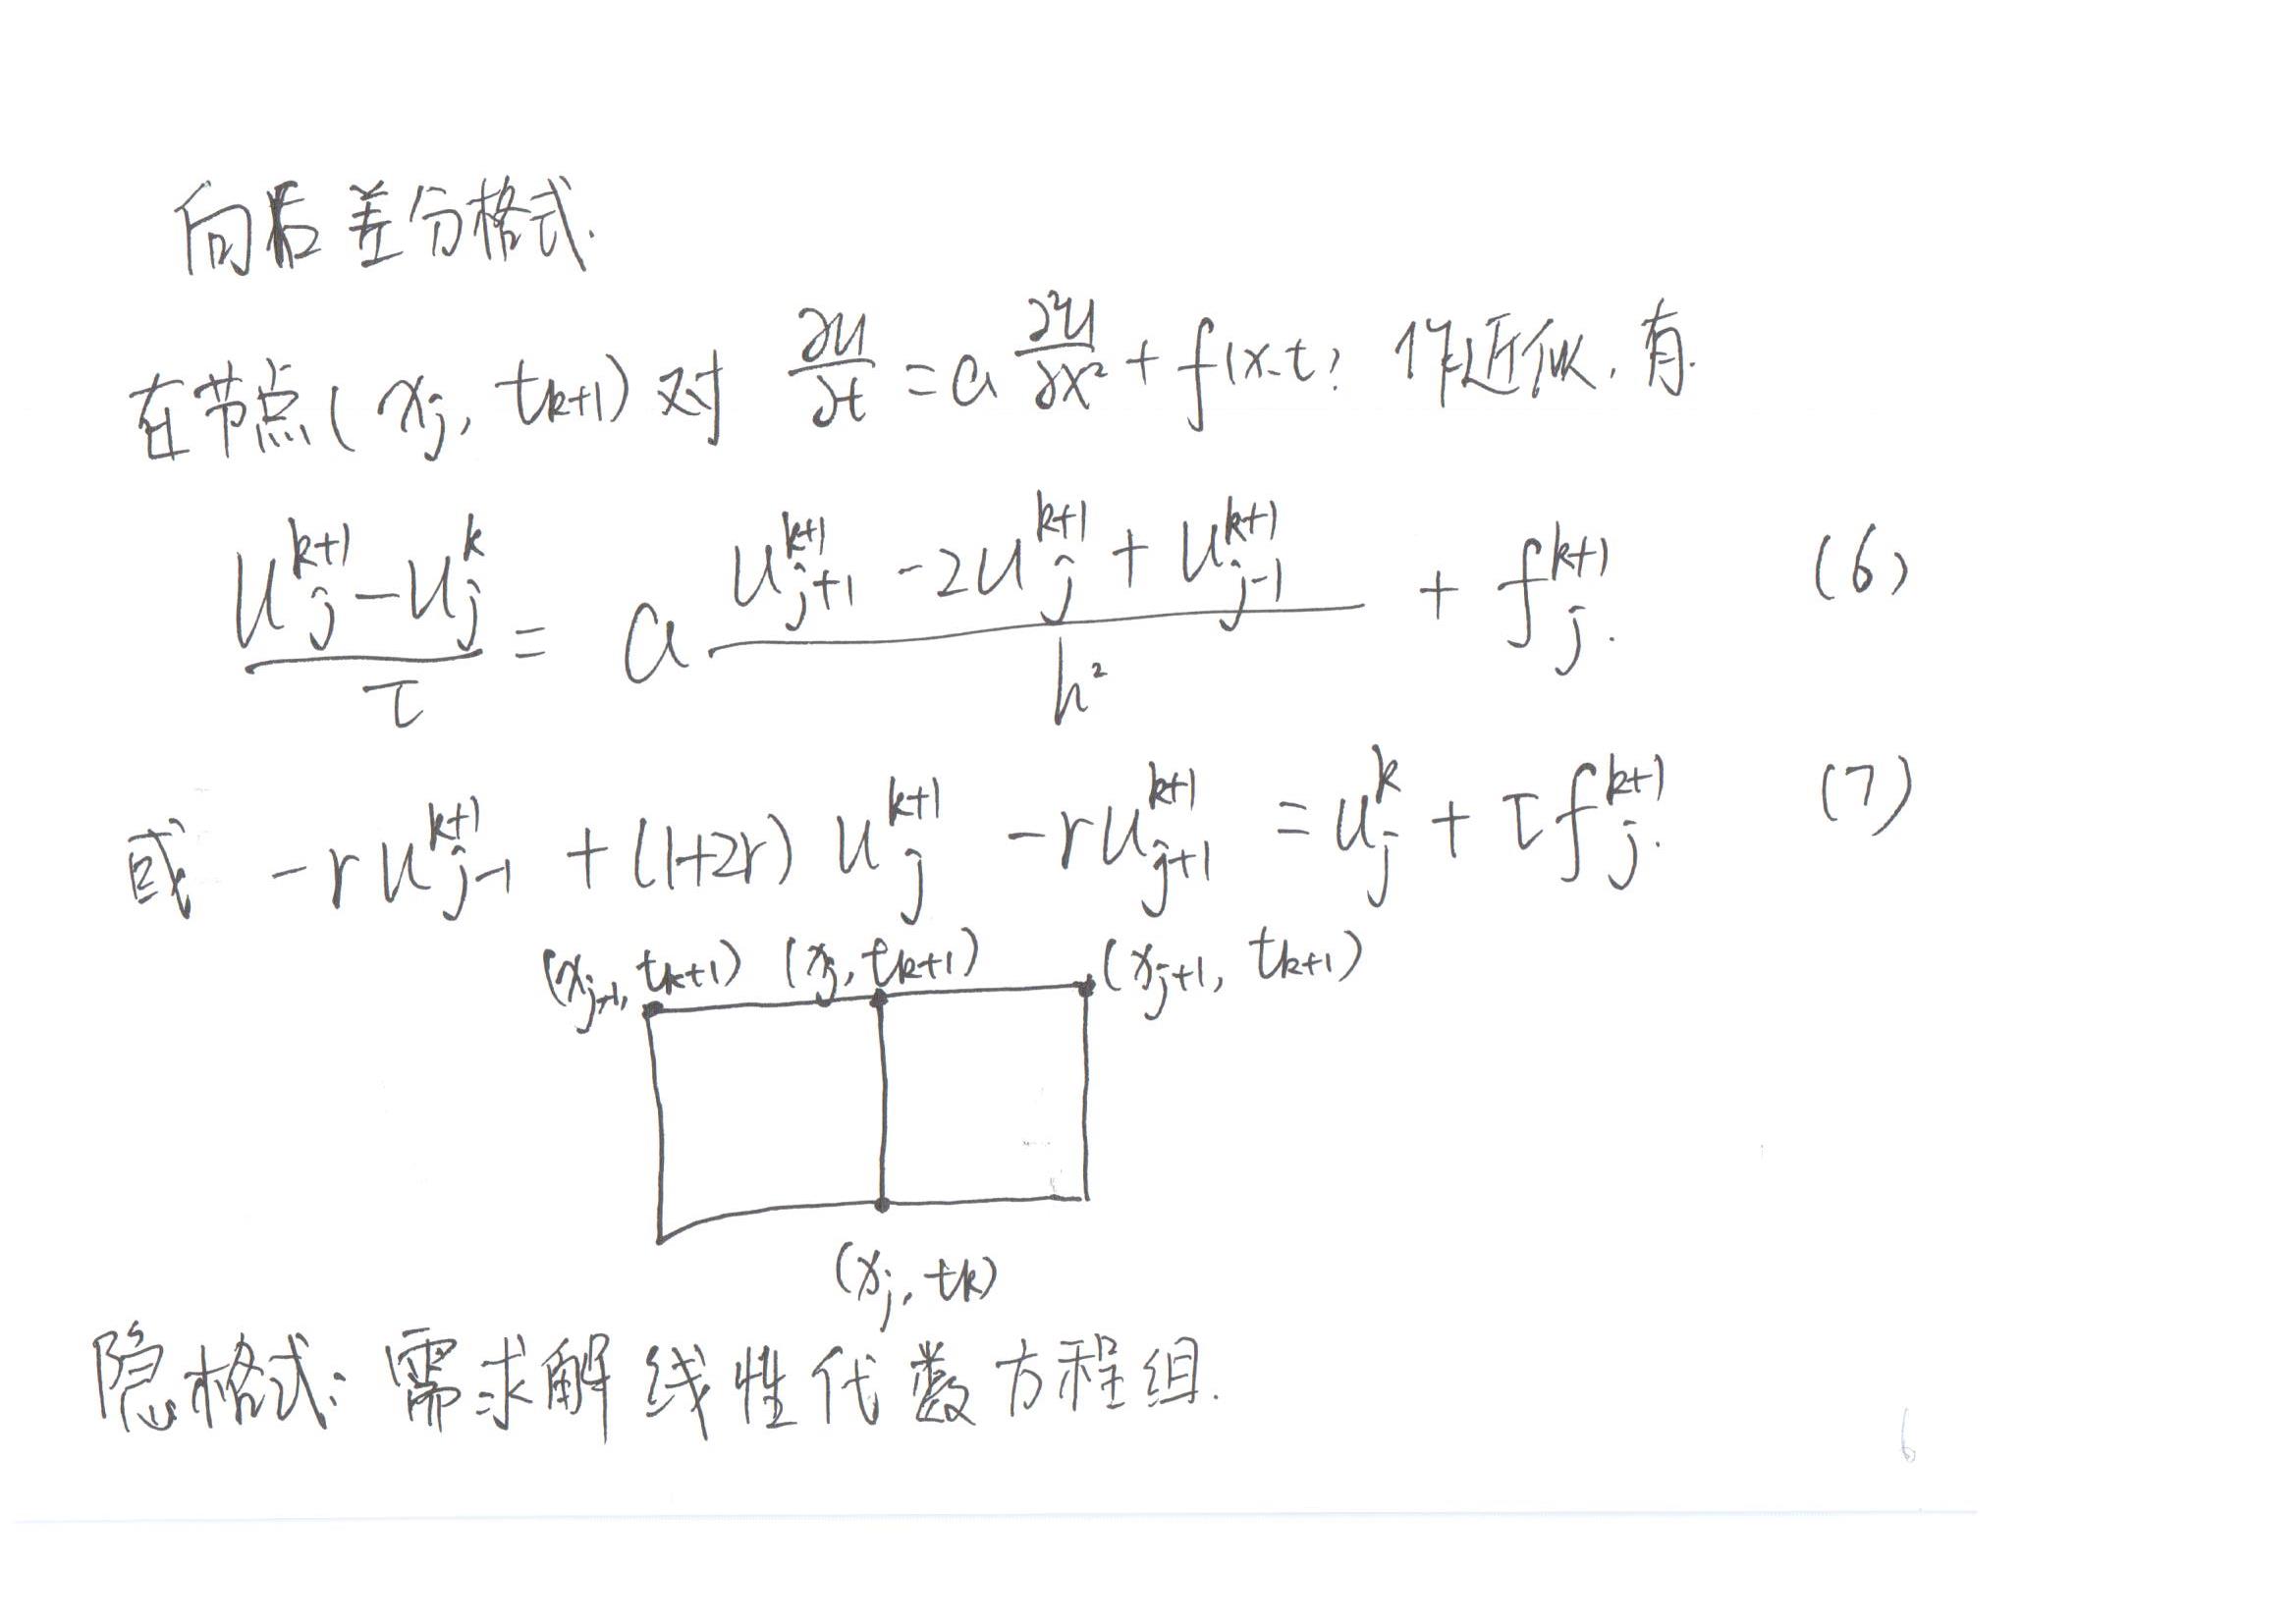 向后差分格式.
在节点(x_j, t_{k+1})对 ∂u/∂t = a ∂²u/∂x² + f(x.t) 作近似.有.
(u_j^{k+1} - u_j^k)/τ = a (u_{j+1}^{k+1} - 2u_j^{k+1} + u_{j-1}^{k+1})/h² + f_j^{k+1}. (6)
或 -r u_{j-1}^{k+1} + (1+2r) u_j^{k+1} - r u_{j+1}^{k+1} = u_j^k + τ f_j^{k+1}. (7)
(x_{j-1}, t_{k+1}) (x_j, t_{k+1}) (x_{j+1}, t_{k+1})
(x_j, t_k)
隐格式: 需求解线性代数方程组.
6